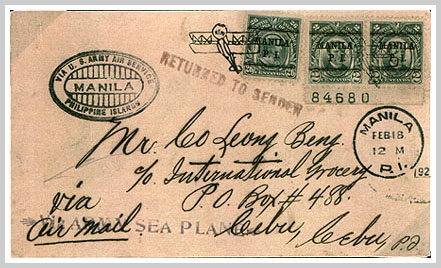 VIA U. S. ARMY AIR SERVICE
MANILA
PHILIPPINE ISLANDS
RETURNED TO SENDER
MANILA
P. I.
MANILA
P. I.
MANILA
P. I.
84680
MANILA
FEB 18
12 M
P. I.
192
Mr. Co Leong Beng.
c/o International Grocery
P. O. Box # 488.
Cebu, Cebu, P.I.
via
air mail
SEA PLANE